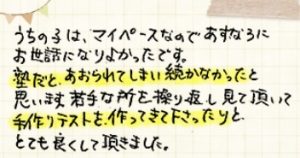 うちの子は、マイペースなのであすなろに
お世話になりよかったです。
塾だと、あおられてしまい続かなかったと
思います。苦手な所を繰り返し見て頂いて
手作りテストを、作ってきて下さったりと、
とても良くして頂きました。